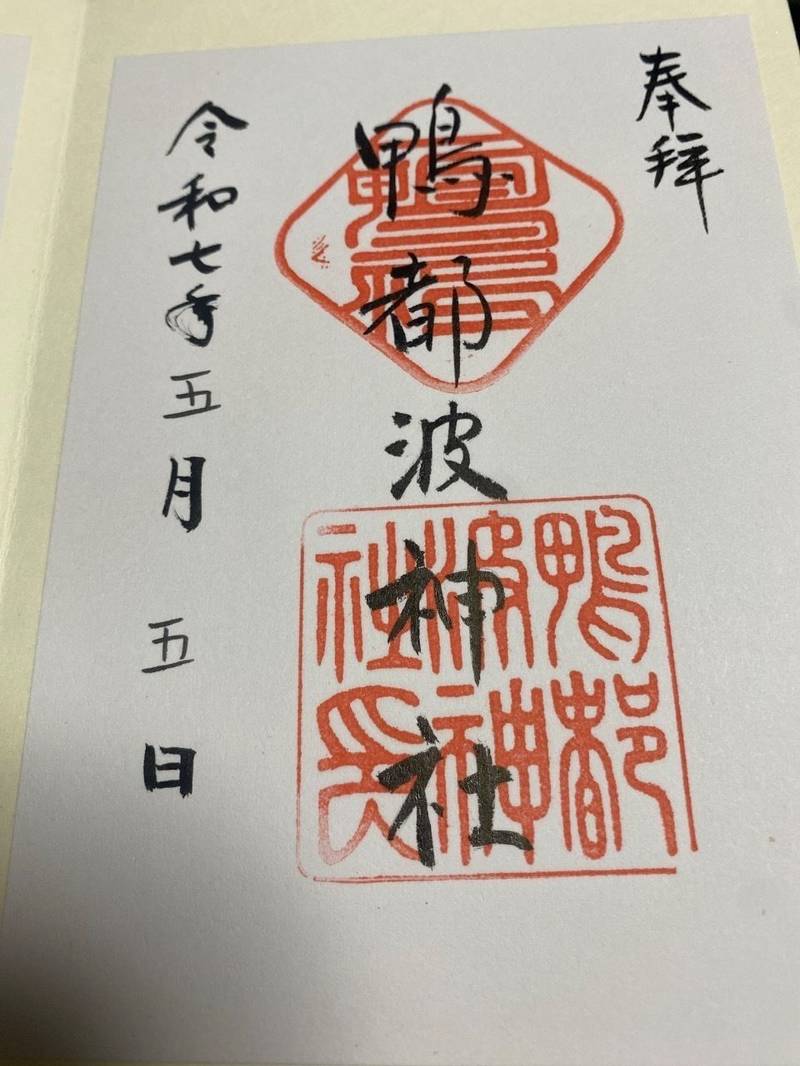 奉拝
鴨都波神社
鴨都
波神
社印
令和七年五月五日